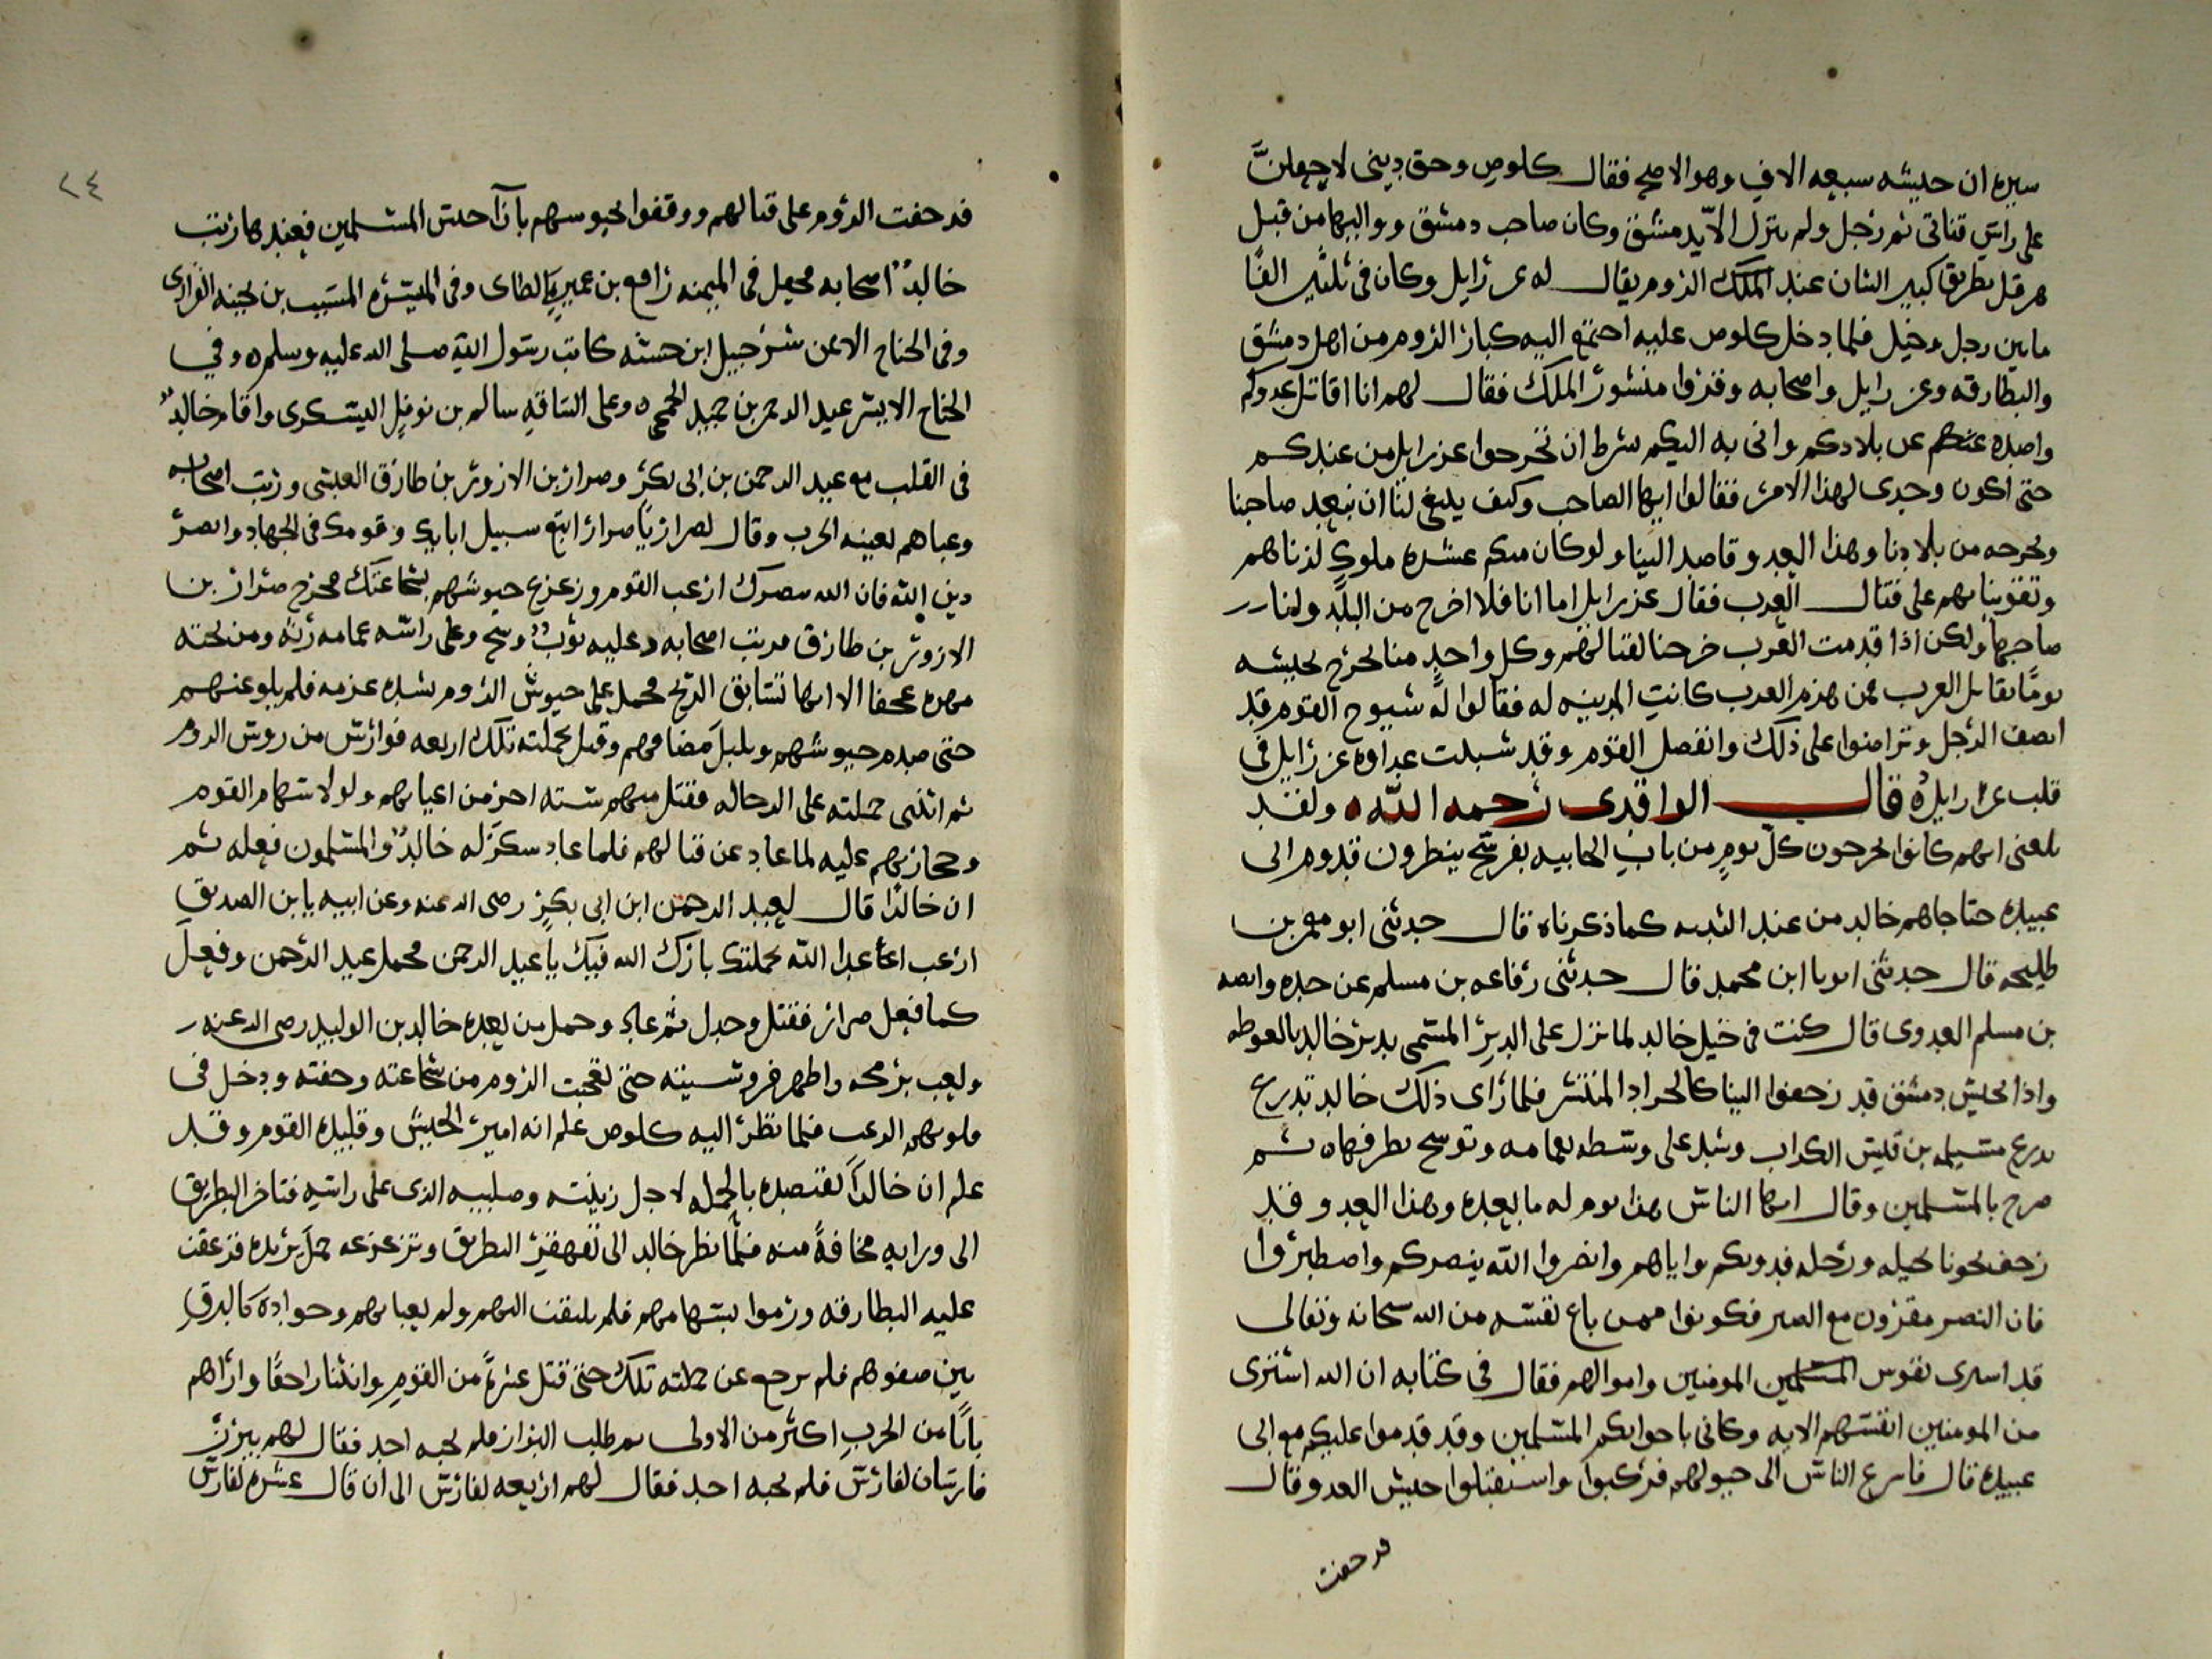 سيره ان جيشه سبعه الاف وهو الاصح فقال كلوص وحق ديني لاجعلنَّ
على راس قناتي ثم رحل ولم ينزل الا بدمشق وكان صاحب دمشق وواليها من قبل
هرقل بطريقا كبير الشان عند الملك الروم يقال له عزرايل وكان في ثلثين الفًا
مابين رجل وخيل فلما دخل كلوص عليه اجتمع اليه كبار الروم من اهل دمشق
والبطارقه وعزرايل واصحابه وقروا منشور الملك فقال لهم انا اقاتل عدوكم
واصده عنكم عن بلادكم واني به اليكم شرط ان تخرجوا عزرايل من عندكم
حتى اكون وحدي لهذا الامر فقالوا ايها الصاحب وكيف يبلغ لنا ان نبعد صاحبنا
ونخرجه من بلادنا وهذا العدو قاصد الينا ولو كان معكم عشره ملوك لدناهم
وتقوينا بهم على قتال العرب فقال عزرايل اما انا فلا اخرج من البلد
صاحبها ولكن اذا قدمت العرب خرجنا لقتالهم وكل واحد منا يخرج بجيشه
يومًا يقابل العرب فمن هزم العرب كانت المدينه له فقالوا له شيوخ القوم قد
انصف الرجل وتراضوا على ذلك وانفصل القوم وقد شبلت عداوه عزرايل في
قلب عزرايل ه قال الواقدي رحمه الله ه ولقد
بلغني انهم كانوا يخرجون كل يوم من باب الجابيه بفرسخ ينظرون قدوم ابي
عبيده حتا جاهم خالد من عند الثنيه كما ذكرناه قال حدثني ابو معمر بن
طليحه قال حدثني ابن محمد قال حدثني رفاعه بن مسلم عن جده
بن مسلم العدوي قال كنت في خيل خالد لما نزل على الدير المسمى بدير خالد بالغوطه
واذا بجيش دمشق قد زحفوا الينا كالجراد المنتشر فلما راى ذلك خالد تدرع
بدرع مسيلمه بن قيس الكداب وشد على وسطه بعمامه وتوسح بطرفها ه ثم
صرح بالمسلمين وقال ايها الناس هذا يوم له مابعده وهذا العدو قد
زحف نحونا بخيله ورجله فدونكم واياهم وانصروا الله ينصركم واصطبروا
فان النصر مقرون مع الصبر فكونوا ممن باع نفسه من الله سبحانه وتعالى
قد اسرى نفوس المسلمين المومنين واموالهم فقال في كتابه ان الله اشترى
من المومنين انفسهم الايه وكاني باخوانكم المسلمين وقد قدموا عليكم مع ابي
عبيده قال فاسرع الناس الى خيولهم فركبوا واستقبلوا جيش العدو وقال
فزحفت
٢٤
فزحفت الروم على قتالهم ووقفوا بجيوسهم باذا جيش المسلمين فعندها رتب
خالدٌ اصحابه فجعل في الميمنه رافع بن عميره الطاي وفي الميسره المسيب بن نجبه الفزاري
وفي الجناح الايمن شرحبيل ابن حسنه كاتب رسول الله صلى الله عليه وسلم ه وفي
الجناح الايسر عبد الرحمن بن حميد الجمحي ه وعلى الساقه سالم بن نوفل اليشكري واقام خالدٌ
في القلب مع عبد الرحمن بن ابي بكر وضرار بن الازور بن طارق العبسي ورتب اصحابه
وعباهم لعبيه الحرب وقال لضرار يا ضرار اتبع سبيل اباك وقومك في الجهاد وانصر
دين الله فان الله ينصرك ارعب القوم وزعزع جيوشهم بشجاعتك فخرج ضرار بن
الازور بن طارق من بين اصحابه وعليه ثوبٌ وسح وعلى راسه عمامه رثه ومن تحته
مهره عجفا الا انها تسابق الريح فحمل على جيوش الروم بشده عزمه فلم يلو عنهم
حتى صدم جيوشهم وبلبل مضافهم وقتل بحملته تلك اربعه فوارس من روس الروم
ثم انثنى حملته على الرجاله فقتل منهم سته اخر من اعيانهم ولولا سهام القوم
وحجارتهم عليه لما عاد عن قتالهم فلما عاد سكر له خالدٌ والمسلمون فعله ثم
ان خالدًا قال لعبد الرحمن ابن ابي بكرٍ رضى الله عنه وعن ابيه يا ابن الصديق
ارعب اعدا الله بحملتك بارك الله فيك يا عبد الرحمن فحمل عبد الرحمن وفعل
كما فعل ضرار فقتل وجدل ثم عاد وحمل من بعده خالد بن الوليد رضى الله عنه
ولعب برمحه واظهر فروسيته حتى تعجبت الروم من شجاعته وخفته ودخل في
قلوبهم الرعب فلما نظر اليه كلوص علم انه امير الجيش وقليده القوم وقد
علم ان خالدًا يقصده بالحمله لاجل زينته وصليبه الذي على راسه فتاخر البطريق
الى ورايه مخافةً منه فلما نظر خالد الى تقهقر البطريق وتزعزعه حمل يريده فزعقت
عليه البطارقه ورموا بسهامهم فلم يلتفت اليهم ولم يعبا بهم وجواده كالبرق
بين صفوفهم فلم يرجع عن حملته تلك حتى قتل عشرةً من القوم وانثنا راجعًا واراهم
بابًا من الحرب اكثر من الاولى ثم طلب البراز فلم يجبه احد فقال لهم يبرز
فارسان لفارس فلم يجبه احد فقال لهم اربعه لفارس الى ان قال عشره لفارس